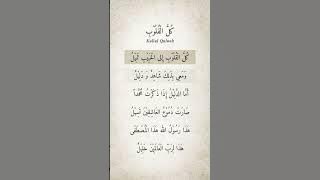 كُلُّ القُلُوبِ
Kullul Quluub
كُلُّ القُلُوبِ إِلَى الحَبِيبِ تَمِيلُ
وَمَعِي بِذَلِكَ شَاهِدٌ وَ دَلِيلُ
أَمَّا الدَّلِيلُ إِذَا ذَكَرْتَ مُحَمَّدًا
صَارَتْ دُمُوعُ العَاشِقِينَ تَسِيلُ
هَذَا رَسُولُ اللهِ هَذَا المُصْطَفَى
هَذَا لِرَبِّ العَالَمِينَ خَلِيلُ